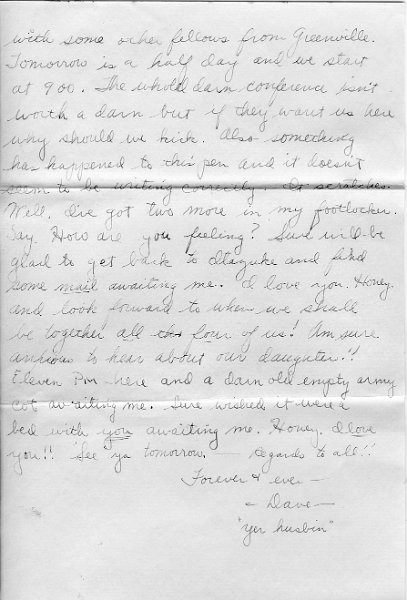 with some other fellows from Greenville.
Tomorrow is a half day and we start
at 900. The whole darn conference isn't
worth a darn but if they want us here
why should we kick. Also something
has happened to this pen and it doesn't
seem to be writing correctly. It scratches.
Well, I've got two more in my footlocker.
Say. How are you feeling? Sure will be
glad to get back to Itazuke and find
some mail awaiting me. I love you Honey
and look forward to when we shall
be together all the four of us! Am sure
anxious to hear about our daughter!!
Eleven PM here and a darn old empty army
cot awaiting me. Sure wished it were a
bed with you awaiting me. Honey, I love
you!! See ya tomorrow. — Regards to all!!
Forever & ever —
— Dave —
"yer husbin"